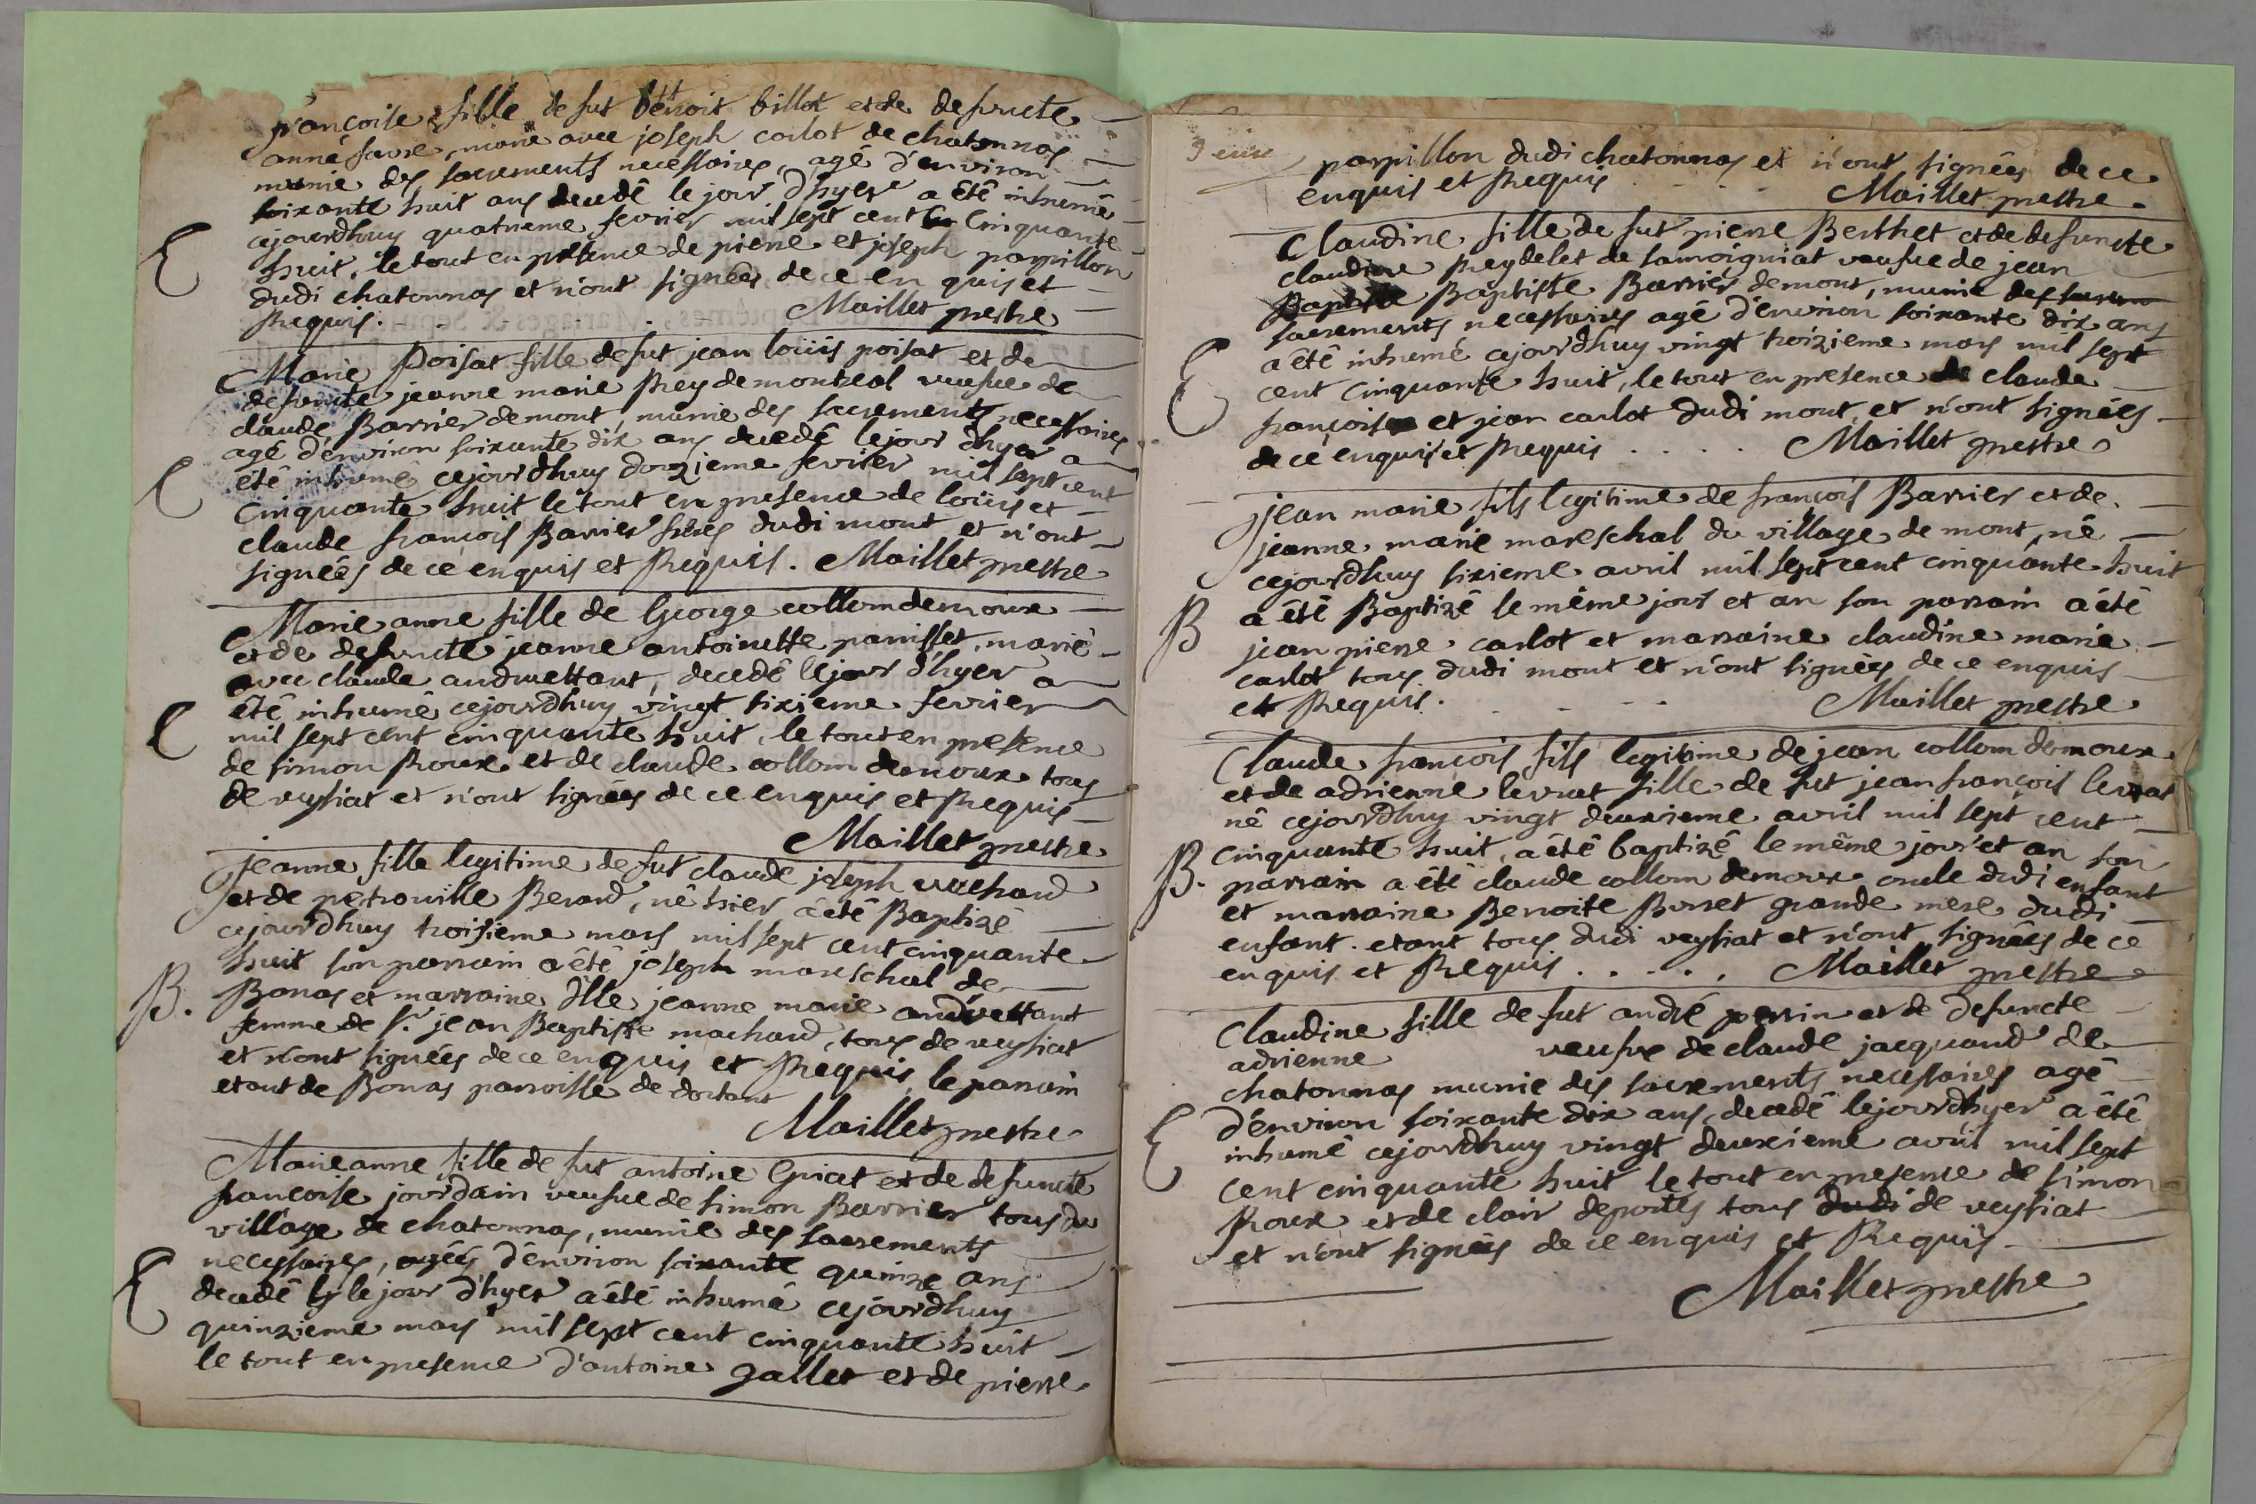 françoise fille de fut benoit billot et de defuncte
anne favre, marié avec joseph carlot de chatonnas
munie des sacrements necessaires, agé d'environ
soixante huit ans decedé le jour d'hyer a été inhumé
cejourdhuy quatrieme fevrier mil sept cent cinquante
E huit, le tout en présence de pierre et joseph papillon
dudi chatonnas et n'ont signées de ce enquis et
Requis. Maillet prestre
Marie Poisat fille de fut jean loüis poisat et de
defuncte jeanne marie Rey de montreal veufve de
claude Barrier de mont, munie des sacrements necessaires
agé d'environ soixante dix ans decedé le jour d'hyer a
E été inhumé cejourdhuy douzieme fevrier mil sept cent
cinquante huit le tout en presence de loüis et
claude françois Barrier frères dudi mont et n'ont
signées de ce enquis et Requis. Maillet prestre
Marie anne fille de George collomdemoux
et de defuncte jeanne antoinette panisset, marié
avec claude andruettant, decedé le jour d'hyer a
été inhumé cejourdhuy vingt sixieme fevrier
E mil sept cent cinquante huit, le tout en presence
de simon Roux et de claude collom demoux tous
de veysiat et n'ont signées de ce enquis et Requis
Maillet prestre
jeanne fille legitime de fut claude joseph vuchard
et de petronille Berard, né hier, a été Baptizé
cejourdhuy troisieme mars mil sept cent cinquante
huit son parrain a été joseph mareschal de
B. Bonas et marraine dlle jeanne marie andruettant
femme de sr jean Baptiste machard, tous de veysiat
et n'ont signées de ce enquis et Requis, le parrain
etant de Bonas parroisse de dortant
Maillet prestre
Marie anne fille de fut antoine Griat et de defuncte
françoise jourdain veufve de simon Barrier tous du
village de chatonnas, munie des sacrements
necessaires, agées d'environ soixante quinze ans
E decedé le jour d'hyer a été inhumé cejourdhuy
quinzieme mars mil sept cent cinquante huit
le tout en presence d'antoine gallet et de pierre
papillon dudi chatonnas et n'ont signées de ce
enquis et Requis Maillet prestre
Claudine fille de fut pierre Berthet et de defuncte
claudine Reydelet de samoigniat veufve de jean
Baptiste Baptiste Barrier de mont, munie des
sacrements necessaires agé d'environ soixante dix ans
E a été inhumé cejourdhuy vingt troizieme mars mil sept
cent cinquante huit, le tout en presence de claude
françois et jean carlot dudi mont et n'ont signées
de ce enquis et Requis . . . . Maillet prestre
jean marie fils legitime de françois Barrier et de
jeanne marie mareschal du village de mont, né
cejourdhuy sixieme avril mil sept cent cinquante huit
B a été Baptizé le même jour et an son parrain a été
jean pierre carlot et marraine claudine marie
carlot tous dudi mont et n'ont signées de ce enquis
et Requis. Maillet prestre
Claude françois fils legitime de jean collom demoux
et de adrienne levrat fille de fut jean françois levrat
né cejourdhuy vingt deuxieme avril mil sept cent
B. cinquante huit, a été baptizé le même jour et an son
parrain a été claude collom demoux oncle dudi enfant
et marraine Benoite Burset grande mere dudi
enfant. etant tous dudi veysiat et n'ont signées de ce
enquis et Requis . . . . . Maillet prestre
Claudine fille de fut andré perrin et de defuncte
adrienne veufve de claude jacquand de
chatonnas munie des sacrements necessaires agé
d'environ soixante dix ans, decedé le jour d'hyer a été
E inhumé cejourdhuy vingt deuxieme avril mil sept
cent cinquante huit le tout en presence de simon
Roux et de clair deportes tous dudi de veysiat
et n'ont signées de ce enquis et Requis
Maillet prestre